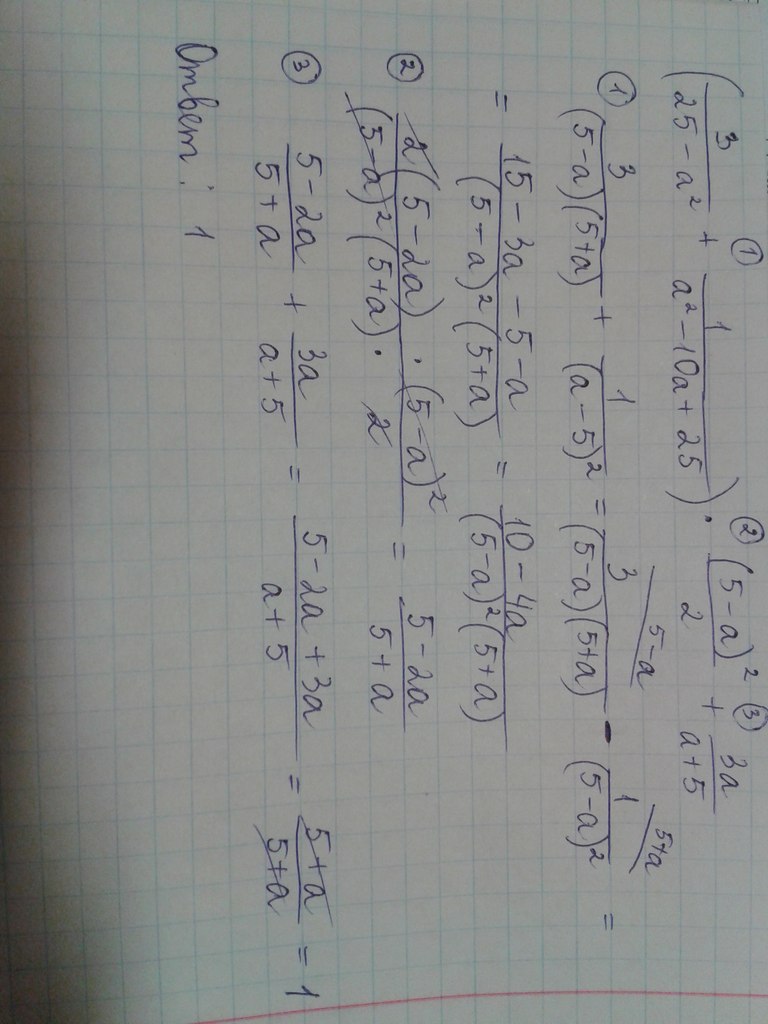 ① ② ③
(3/(25-a²) + 1/(a²-10a+25)) · (5-a)²/2 + 3a/(a+5)
① 3/((5-a)(5+a)) + 1/(a-5)² = 3/((5-a)(5+a)) /5-a - 1/(5-a)² /5+a =
= (15-3a-5-a)/((5-a)²(5+a)) = (10-4a)/((5-a)²(5+a))
② (2(5-2a) · (5-a)²)/((5-a)²(5+a) · 2) = (5-2a)/(5+a)
③ (5-2a)/(5+a) + 3a/(a+5) = (5-2a+3a)/(a+5) = (5+a)/(5+a) = 1
Ответ: 1